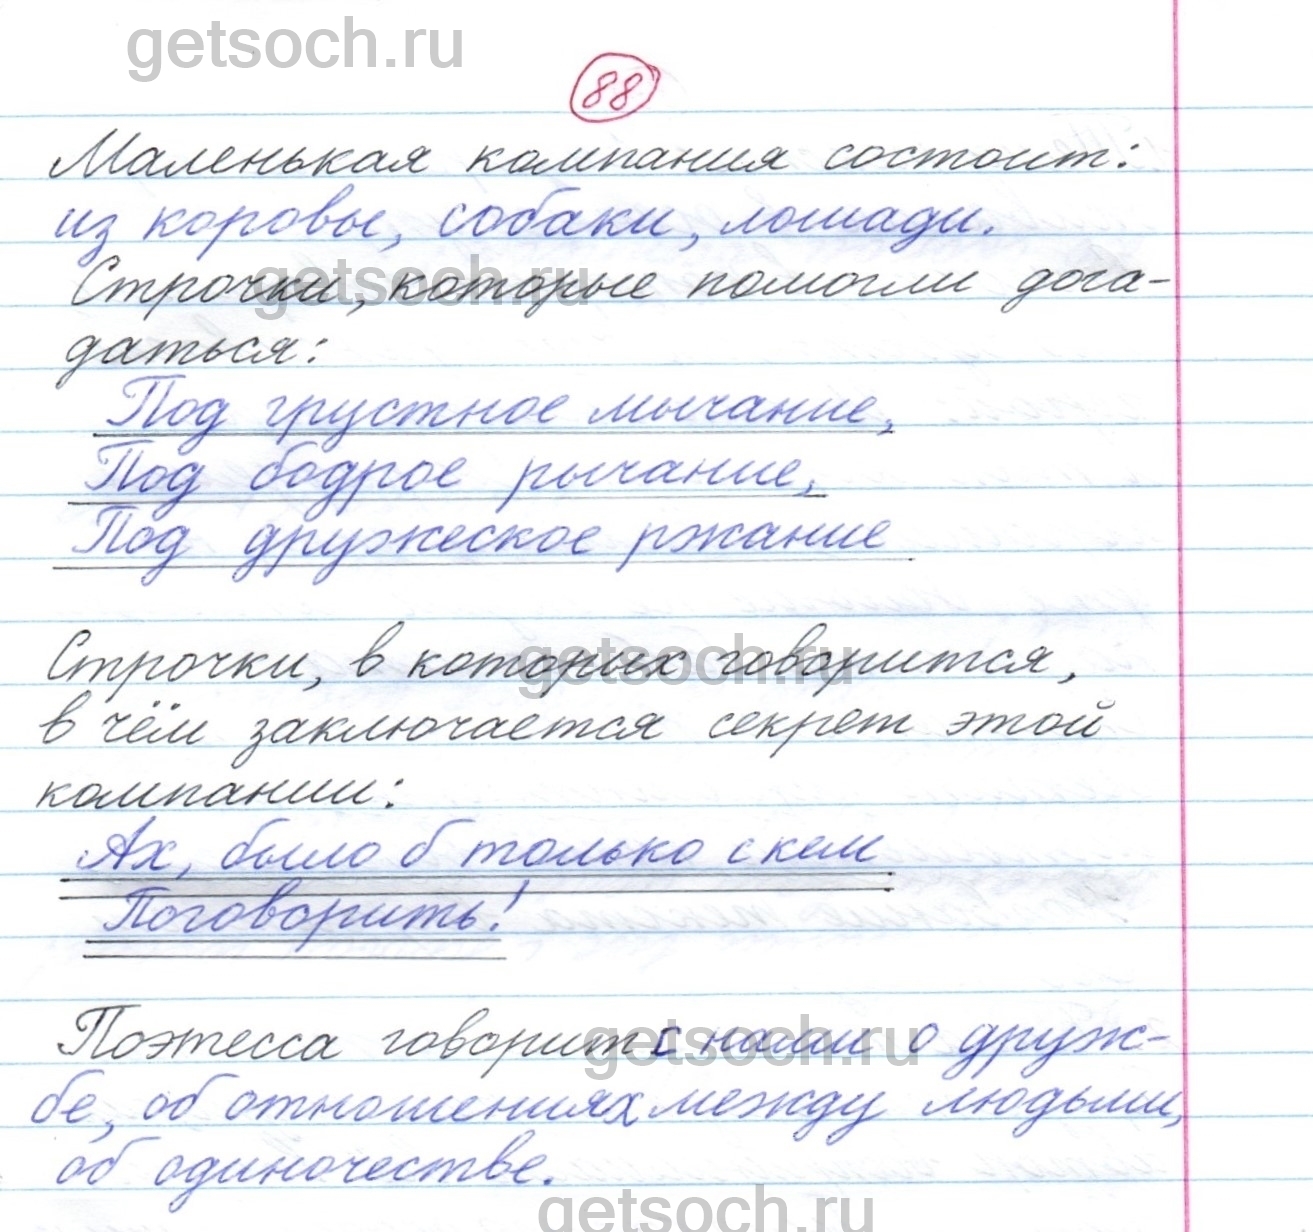 getsoch.ru
88
Маленькая компания состоит:
из коровы, собаки, лошади.
Строчки, которые помогли дога-
getsoch.ru
даться:
Под грустное мычание,
Под бодрое рычание,
Под дружеское ржание
Строчки, в которых говорится,
getsoch.ru
в чём заключается секрет этой
компании:
Ах, было б только с кем
Поговорить!
Поэтесса говорит с нами о друж-
getsoch.ru
бе, об отношениях между людьми,
об одиночестве.
getsoch.ru